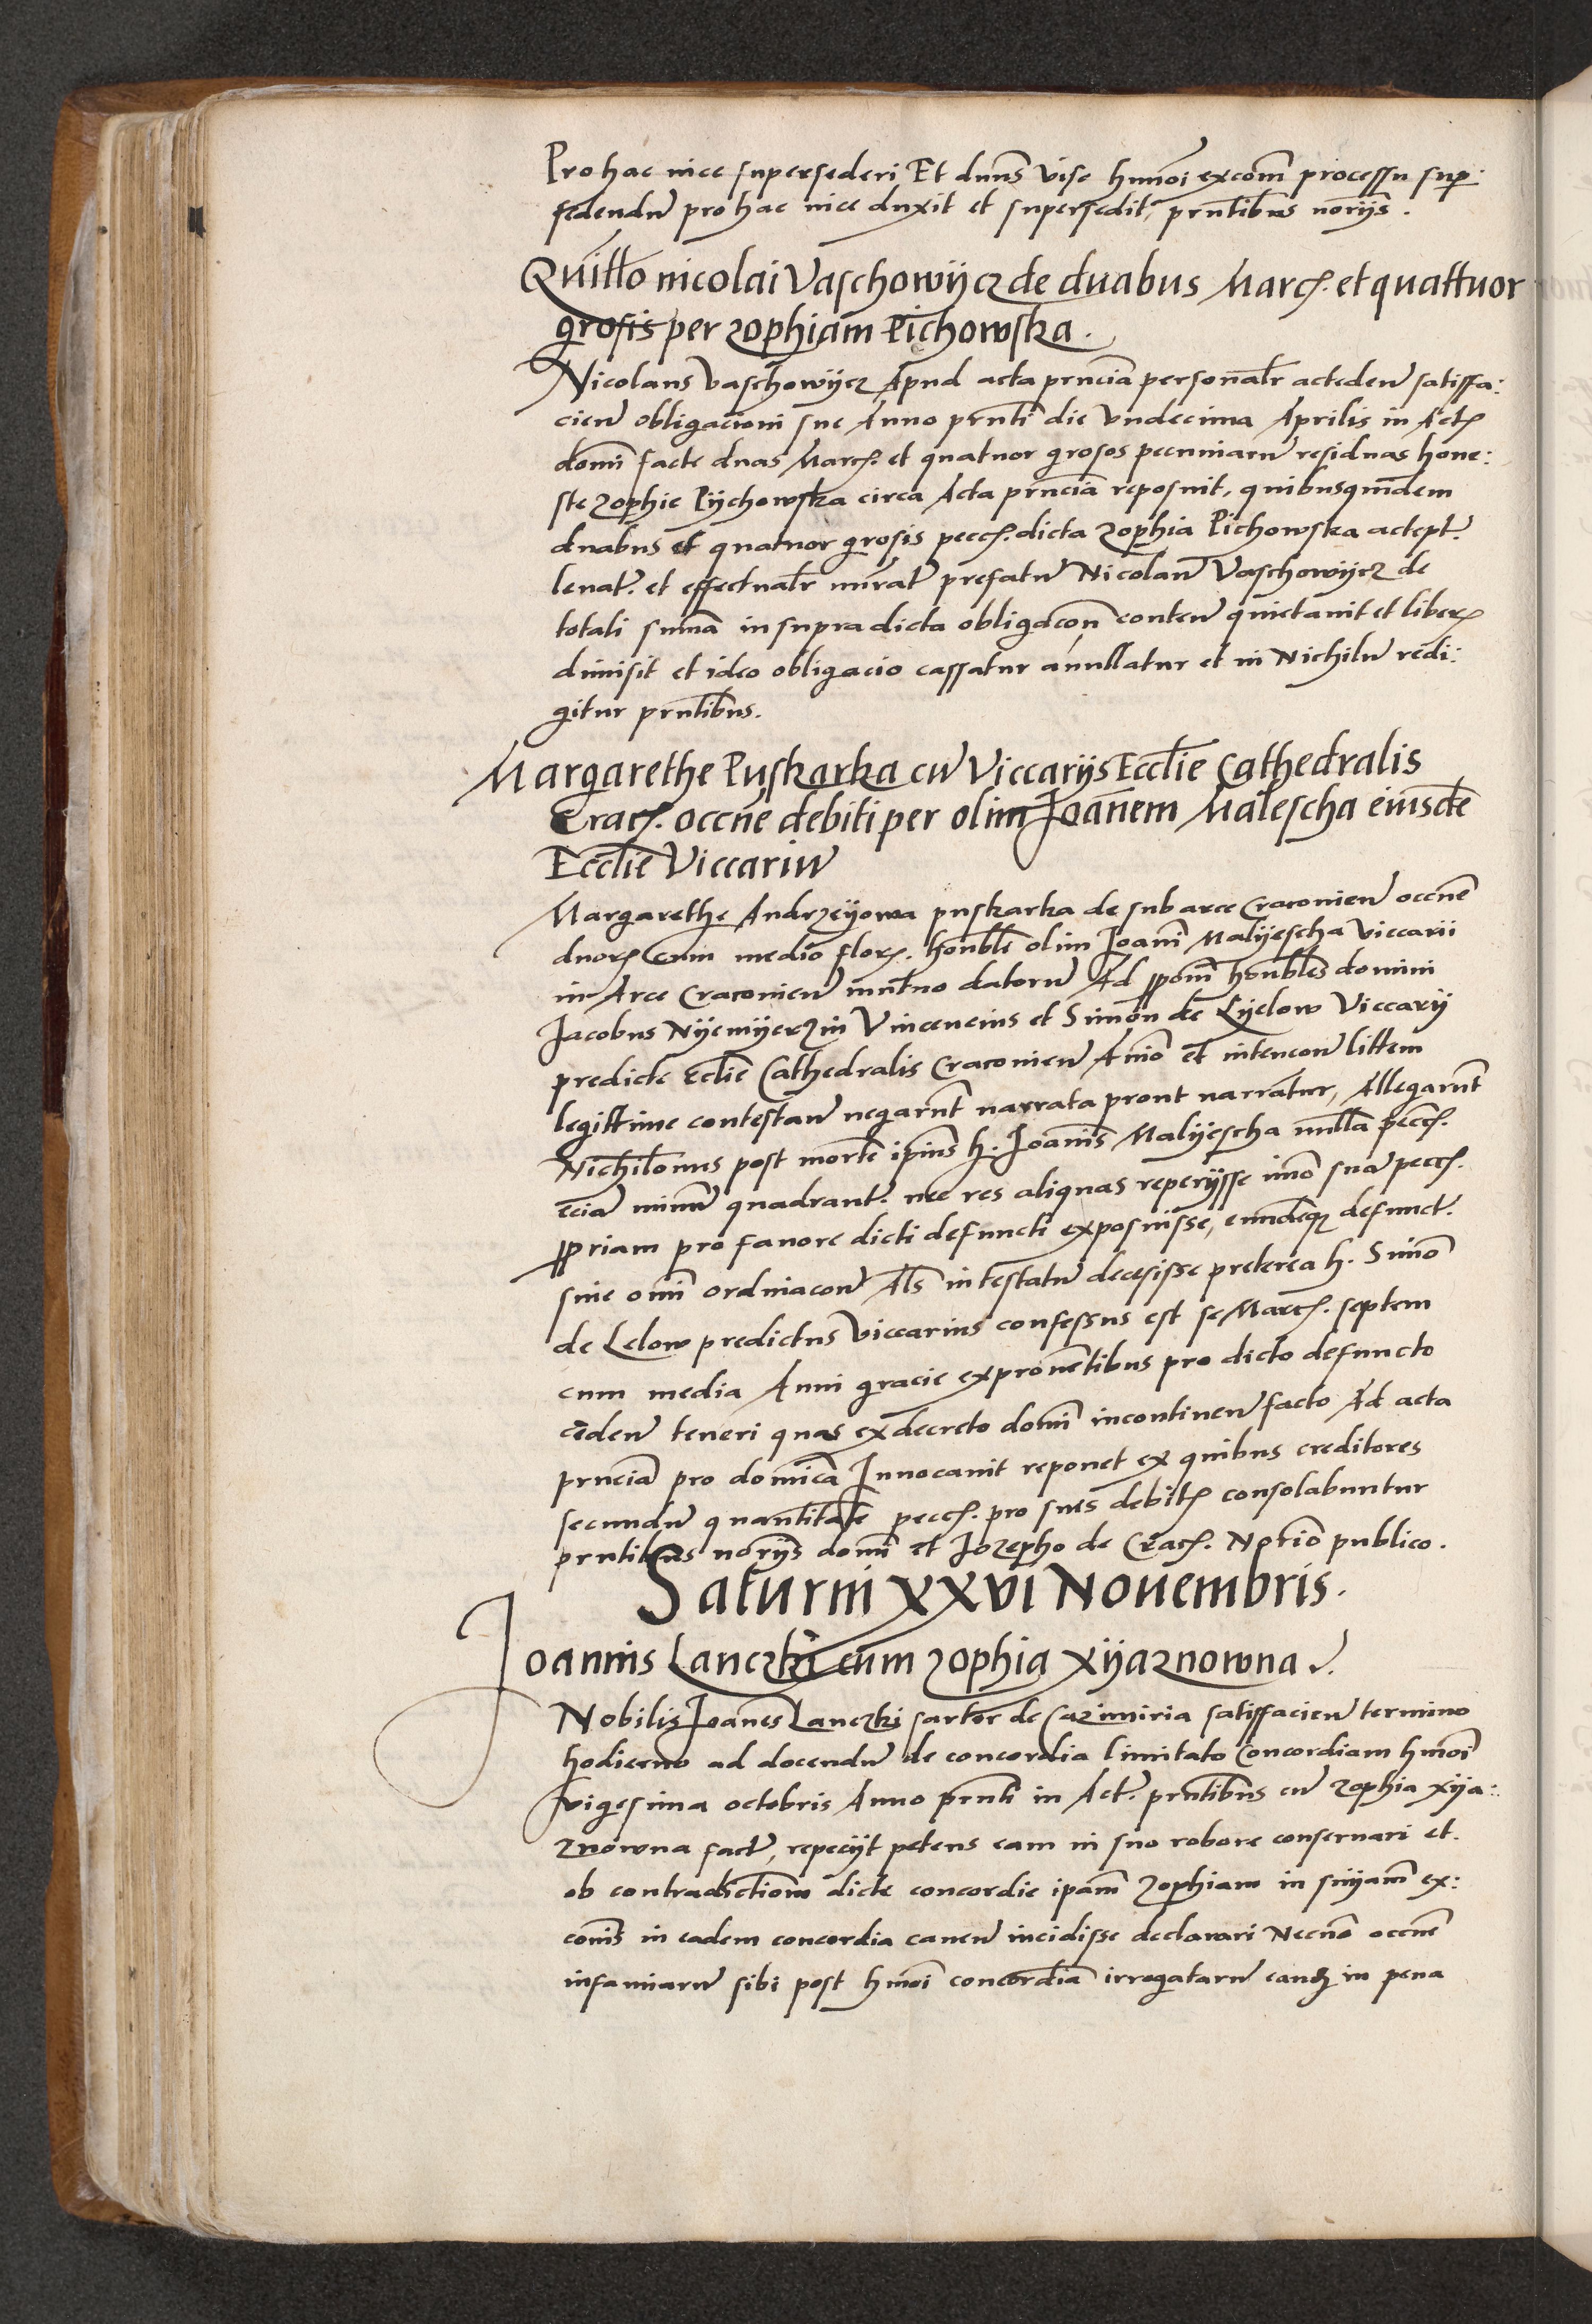 Pro hac vice supersederi Et dnns vise hmoi excom processu sup:
sedendu pro hac vice duxit et supersedit, prntibus noriis.
Quitto nicolai Vaschowijcz de duabus Marc. et quattuor
grosis per zophiam Pichowska.
Nicolaus Vaschowijcz Apud acta prncia personalr acceden satisfa:
cien obligacioni sue Anno prnti die Undecima Aprilis in Act
domi facte duas Marc. et quatuor grosos pecuniaru residuas hone:
ste zophie Pijchowska circa Acta prncia reposuit, quibusquidem
duabus et quatuor grosis pecc. dicta zophia Pichowska accept.
levat. et effectualr nuerat prefatu Nicolau Vaschowijcz de
totali suma in supra dicta obligacon conten quietavit et liber
dimisit et ideo obligacio cassatur anullatur et in Nichilu redi:
gitur prntibus.
Margarethe Puskarka cu Viccarijs Ecclie Cathedralis
Crac. occne debiti per olim Joanem Malescha eiusde
Ecclie Viccariu
Margarethe Andrzeijowa puskarka de sub arce Craconien occne
duor cum medio flor. honbli olim Joani Malijescha Viccarii
in Arce Craconien mutuo datoru Ad ppom honbles domini
Jacobus Nijemijerzin Vincencius et Simon de Lijelow Viccarij
predicte Eclie Cathedralis Craconien Animo et intencon littem
legittime contestan negarnt narrata prout narratur, Allegarnt
Nichilomus post morte ipius h. Joanis Malijescha nulla pecc.
ecia minu quadrant. nec res aliquas reperijsse imo sua pecc.
ppriam pro favore dicti defuncti exposuisse, eundeq defunct.
sine omi ordinacon Als intestatu decesisse preterea h. Simo
de Lelow predictus Viccarius confessus est se Marc. septem
cum media Anni gracie ex proventibus pro dicto defuncto
ceden teneri quas ex decreto domi incontinen facto Ad acta
prncia pro domica Invocavit reponet ex quibus creditores
secundu quantitate pecc. pro suis debit consolabuntur
prntibus noriis domi et Jozepho de Crac. Notrio publico.
Saturni XXVI Novembris.
Joannis Lanczki cum zophia xijaznowna.
Nobilis Joanes Lanczki sartor de Cazimiria satisfacien termino
hodierno ad docendu de concordia limitato Concordiam hmoi
vigesima octobris Anno prnti in Act. prntibus cu zophia xija:
znowna fact, repeciit petens eam in suo robore conservari et
ob contradictionem dicte concordie ipam zophiam in snijam ex:
conis in eadem concordia caven incidisse declarari Necno occne
infamiaru sibi post hmoi concordia irrogataru eanq in pena